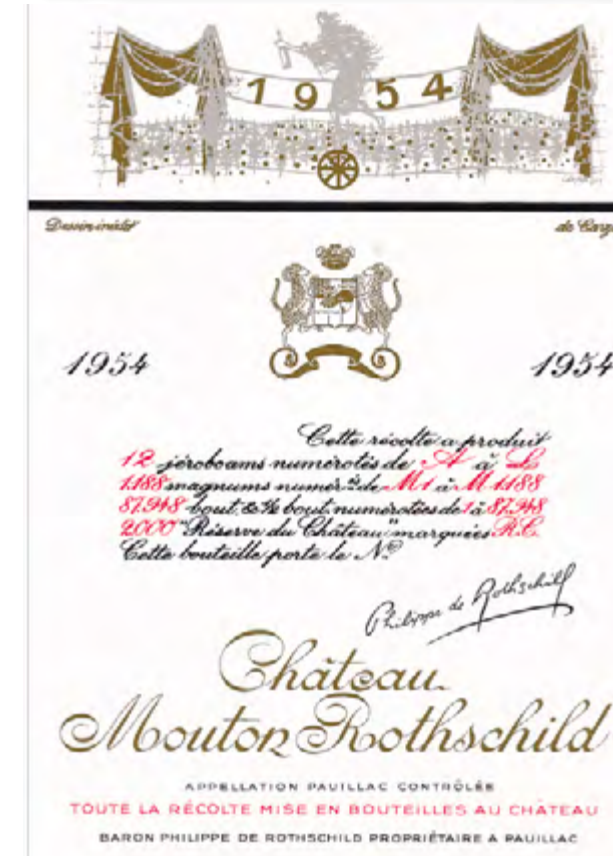 1954
Dessin inédit de Carzou
1954 1954
Cette récolte a produit
12 jéroboams numérotés de A à L
1.188 magnums numér.ᵗᵉˢ de M1 à M1188
87.948 bout. & ½ bout. numérotées de 1 à 87.948
2.000 "Réserve du Château" marquées R.C.
Cette bouteille porte le Nº
Philippe de Rothschild
Château
Mouton Rothschild
APPELLATION PAUILLAC CONTRÔLÉE
TOUTE LA RÉCOLTE MISE EN BOUTEILLES AU CHATEAU
BARON PHILIPPE DE ROTHSCHILD PROPRIÉTAIRE A PAUILLAC